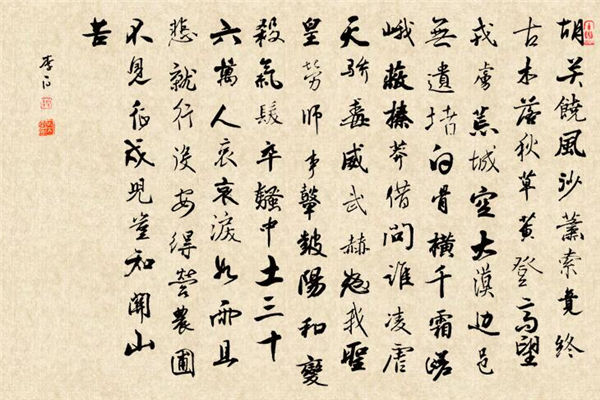 胡关饒風沙蕭索竟終
古木落秋草黄登高望
戎虜荒城空大漠边邑
無遺堵白骨横千霜嵯
峨蔽榛莽借問誰凌虐
天骄毒威武赫怒我聖
皇勞師事鼙皷陽和變
殺氣髮卒騷中土三十
六萬人哀哀淚如雨且
悲就行役安得營農圃
不見征戍兒豈知關山
苦
李白